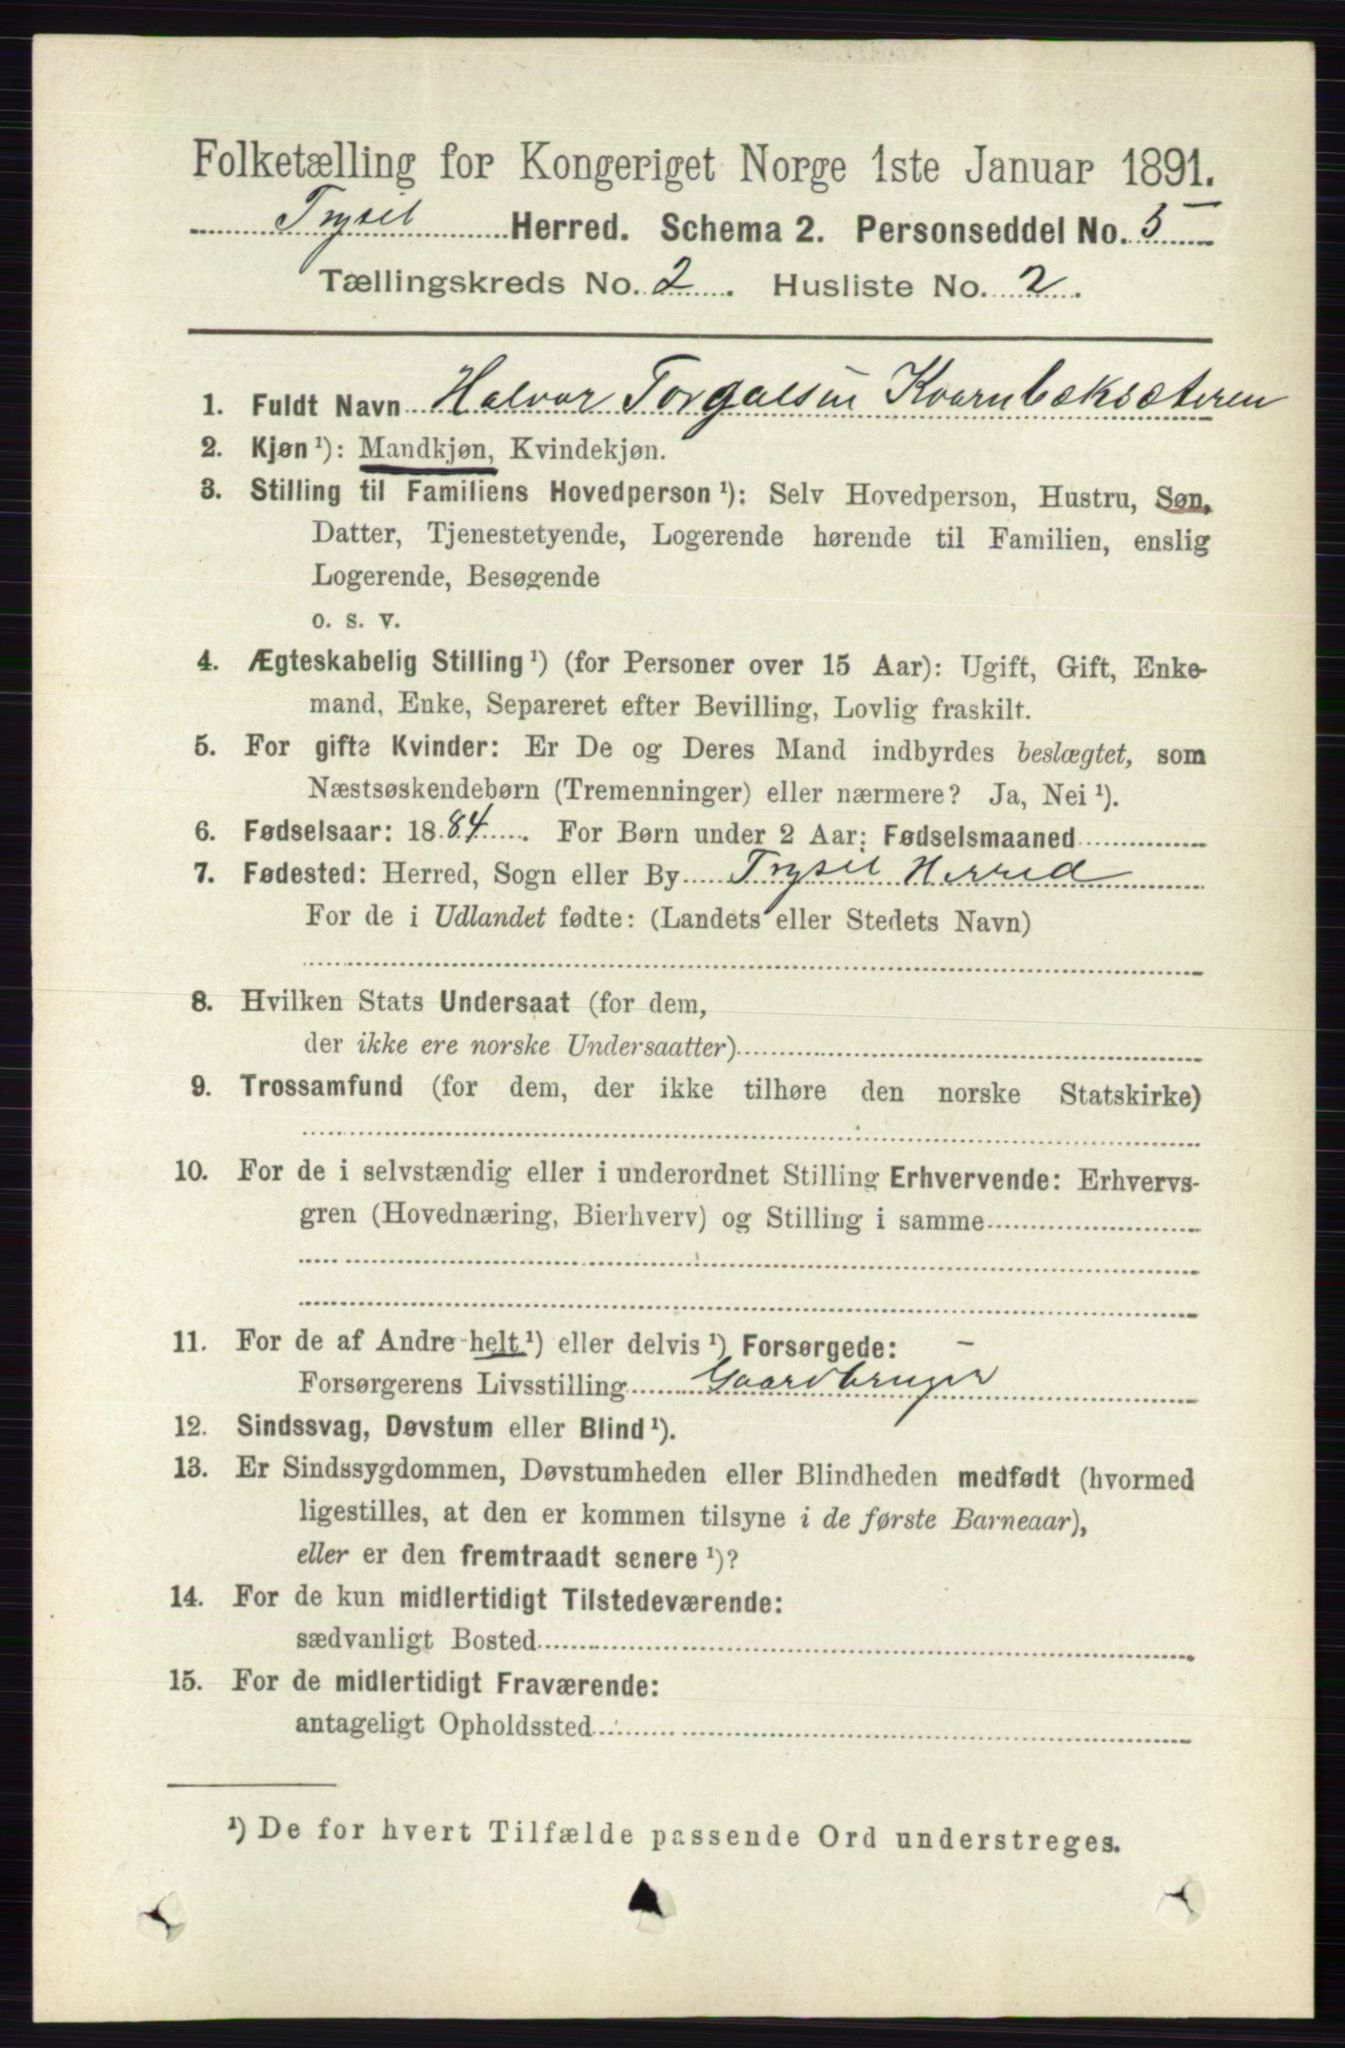 Folketælling for Kongeriget Norge 1ste Januar 1891.
Trysil Herred. Schema 2. Personseddel No. 5
Tællingskreds No. 2. Husliste No. 2.
1. Fuldt Navn Halvor Torgalsen Kvarnbæksæteren
2. Kjøn ¹): Mandkjøn, Kvindekjøn.
3. Stilling til Familiens Hovedperson ¹): Selv Hovedperson, Hustru, Søn,
Datter, Tjenestetyende, Logerende hørende til Familien, enslig
Logerende, Besøgende
o. s. v.
4. Ægteskabelig Stilling ¹) (for Personer over 15 Aar): Ugift, Gift, Enke-
mand, Enke, Separeret efter Bevilling, Lovlig fraskilt.
5. For gifte Kvinder: Er De og Deres Mand indbyrdes beslægtet, som
Næstsøskendebørn (Tremenninger) eller nærmere? Ja, Nei ¹).
6. Fødselsaar: 1884. For Børn under 2 Aar: Fødselsmaaned
7. Fødested: Herred, Sogn eller By Trysil Herred
For de i Udlandet fødte: (Landets eller Stedets Navn)
8. Hvilken Stats Undersaat (for dem,
der ikke ere norske Undersaatter)
9. Trossamfund (for dem, der ikke tilhøre den norske Statskirke)
10. For de i selvstændig eller i underordnet Stilling Erhvervende: Erhvervs-
gren (Hovednæring, Bierhverv) og Stilling i samme
11. For de af Andre helt ¹) eller delvis ¹) Forsørgede: –
Forsørgerens Livsstilling Gaardbruger
12. Sindssvag, Døvstum eller Blind ¹).
13. Er Sindssygdommen, Døvstumheden eller Blindheden medfødt (hvormed
ligestilles, at den er kommen tilsyne i de første Barneaar),
eller er den fremtraadt senere ¹)?
14. For de kun midlertidigt Tilstedeværende:
sædvanligt Bosted
15. For de midlertidigt Fraværende:
antageligt Opholdssted
¹) De for hvert Tilfælde passende Ord understreges.